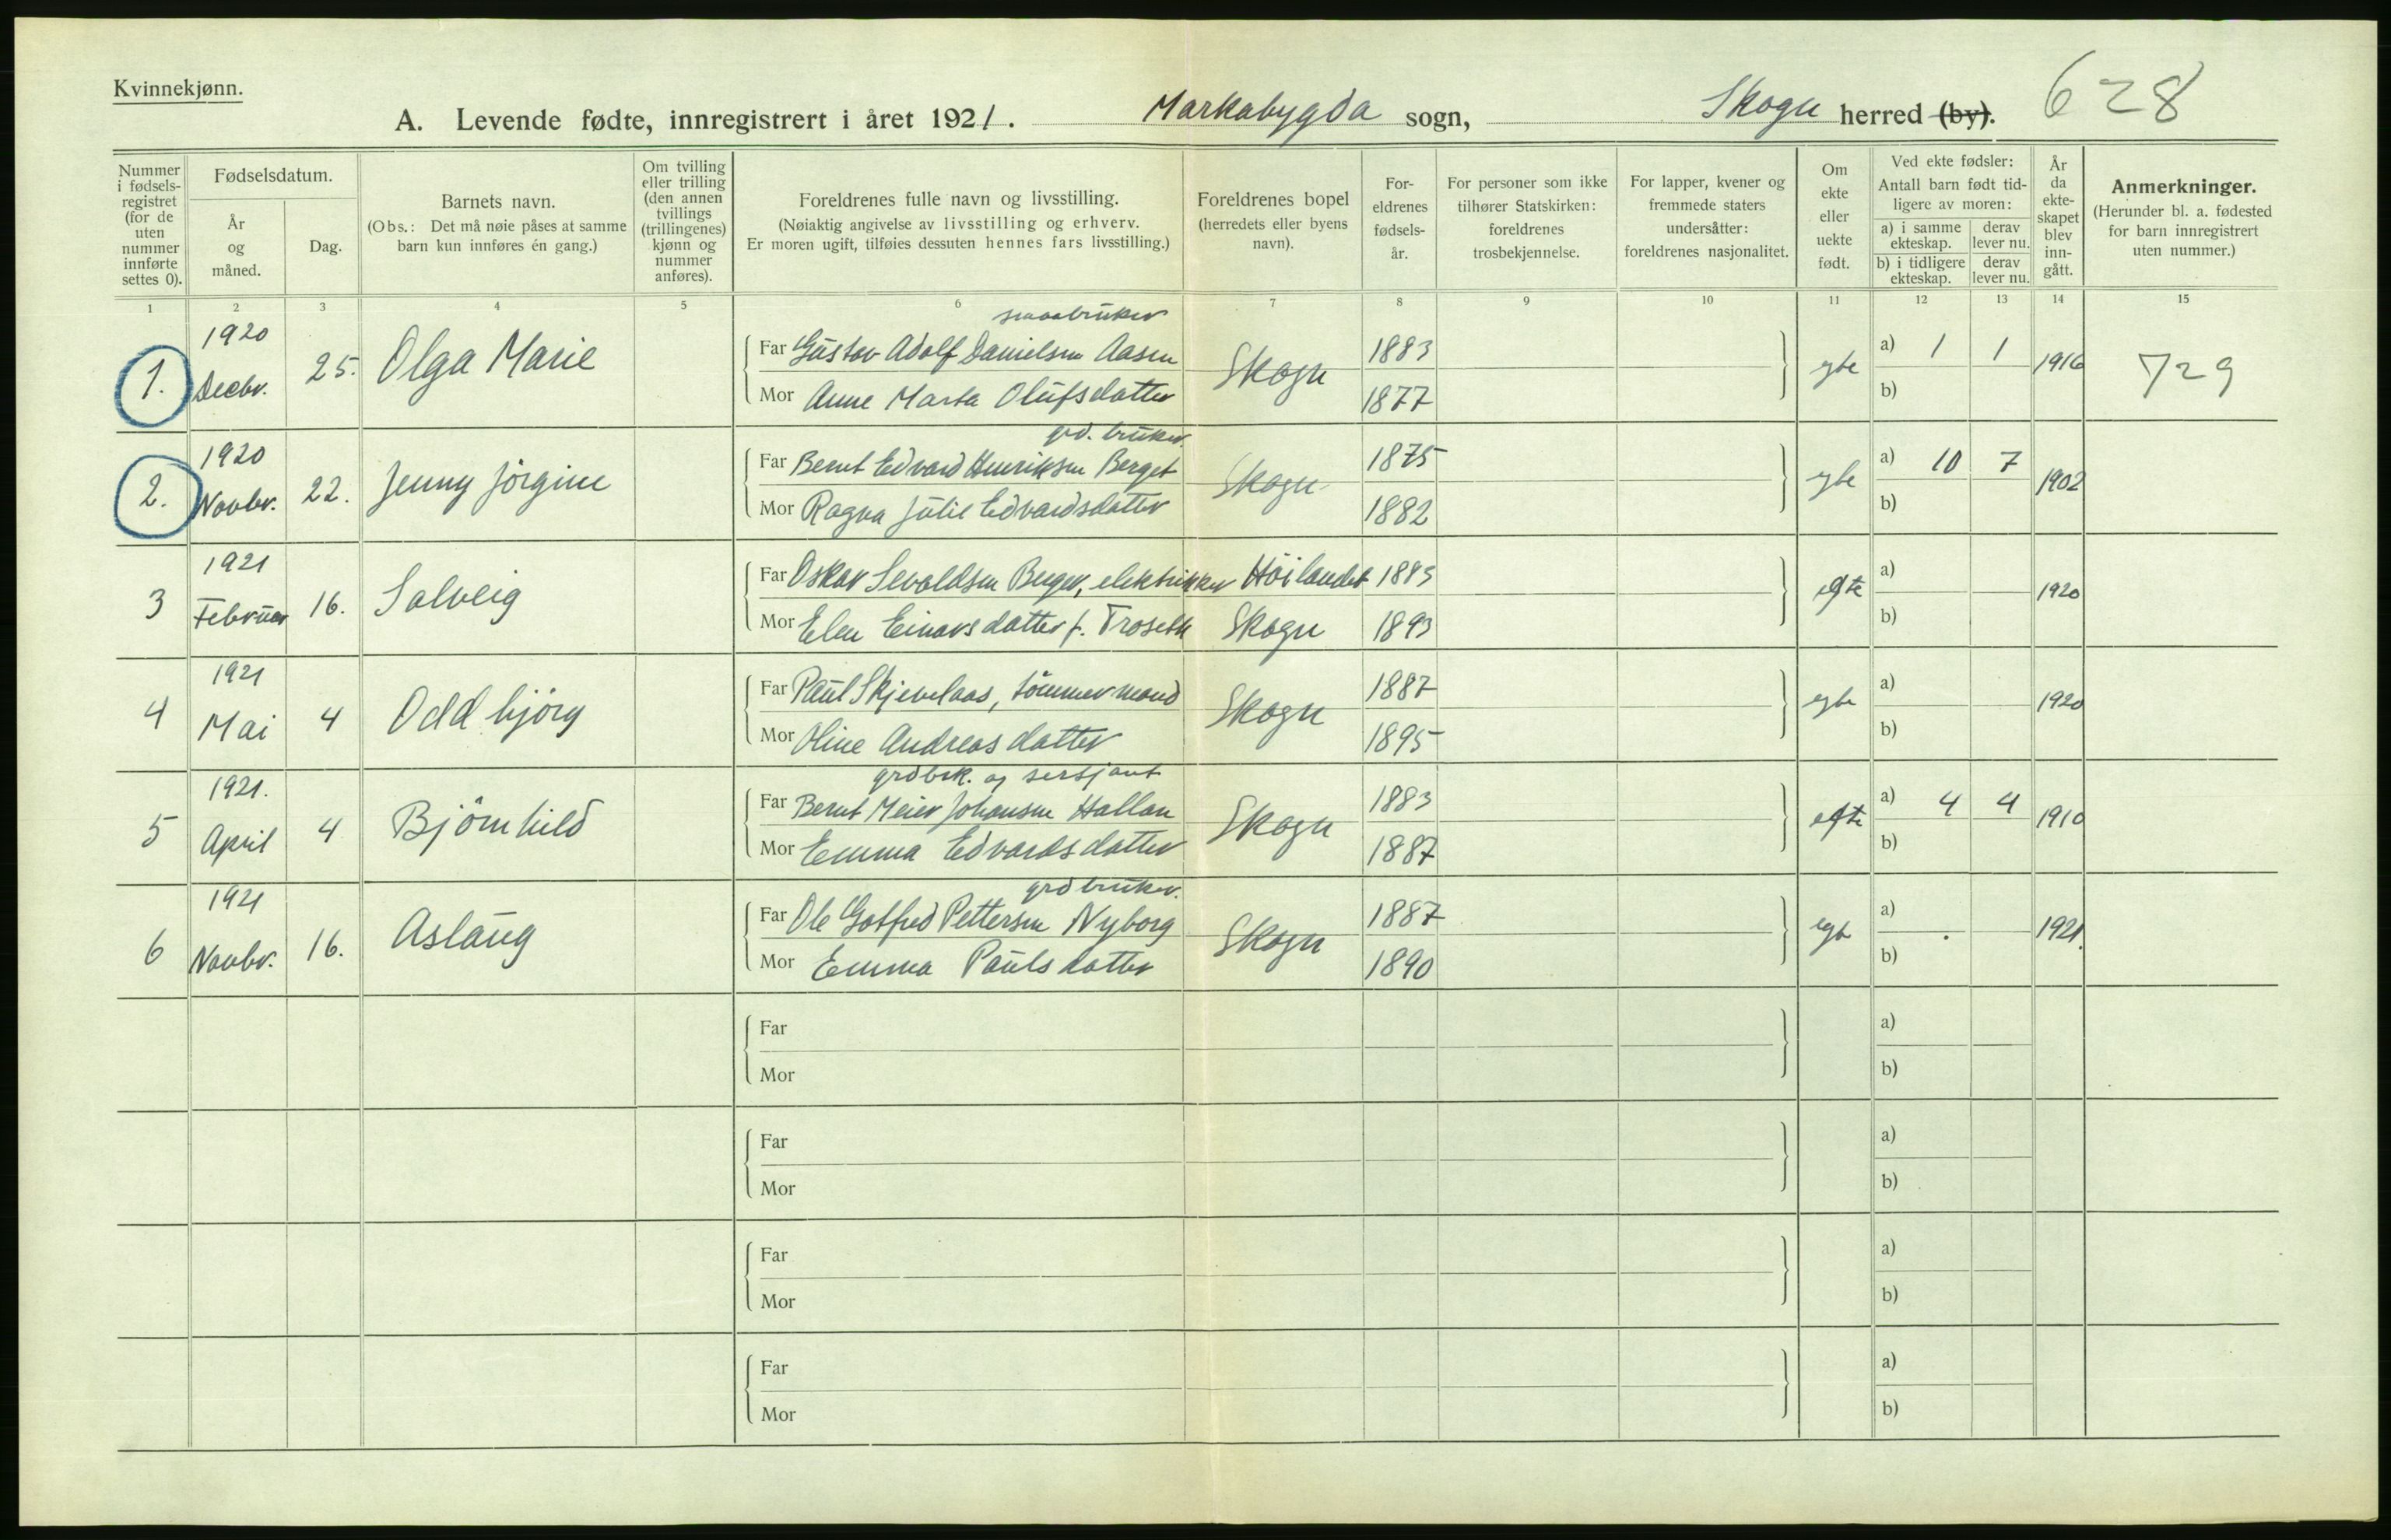 Kvinnekjønn.
628
A. Levende fødte, innregistrert i året 1921. Markabygda sogn, Skogn herred (by).
Nummer i fødsels-registret (for de uten nummer innførte settes 0).
Fødselsdatum.
År og måned.
Dag.
Barnets navn.
(Obs.: Det må nøie påses at samme barn kun innføres én gang.)
Om tvilling eller trilling (den annen tvillings (trillingenes) kjønn og nummer anføres).
Foreldrenes fulle navn og livsstilling.
(Nøiaktig angivelse av livsstilling og erhverv.
Er moren ugift, tilføies dessuten hennes fars livsstilling.)
Foreldrenes bopel (herredets eller byens navn).
For-eldrenes fødsels-år.
For personer som ikke tilhører Statskirken: foreldrenes trosbekjennelse.
For lapper, kvener og fremmede staters undersåtter: foreldrenes nasjonalitet.
Om ekte eller uekte født.
Ved ekte fødsler: Antall barn født tid-ligere av moren:
a) i samme ekteskap.
derav lever nu.
b) i tidligere ekteskap.
derav lever nu.
År da ekte-skapet blev inn-gått.
Anmerkninger.
(Herunder bl. a. fødested for barn innregistrert uten nummer.)
1 2 3 4 5 6 7 8 9 10 11 12 13 14 15
1. 1920 Decbr. 25. Olga Marie
smaabruker
Far Gustav Adolf Danielsen Aasen Skogn 1883
Mor Anne Marta Olufsdatter 1877
egte a) 1 1 1916 729
b)
2. 1920 Novbr. 22. Jenny Jörgine
grd. bruker.
Far Bernt Edvard Henriksen Berget Skogn 1875
Mor Ragna Julie Edvardsdatter 1882
egte a) 10 7 1902
b)
3 1921 Februar 16. Solveig
Far Oskar Sevaldsen Berger, elektrikker Höilandet 1883
Mor Elen Einarsdatter f. Troseth Skogn 1893
egte a) 1920
b)
4 1921 Mai 4 Oddbjörg
Far Paul Skjevelaas, tömmermand Skogn 1887
Mor Oline Andreasdatter 1895
egte a) 1920
b)
5 1921. April 4 Björnhild
grdbrk. og sersjant
Far Bernt Meier Johansen Hallan Skogn 1883
Mor Emma Edvardsdatter 1887
egte a) 4 4 1910
b)
6 1921 Novbr. 16. Aslaug
grdbruker.
Far Ole Gotfred Pettersen Nyborg Skogn 1887
Mor Emma Paulsdatter 1890
egte a) 1921.
b)
Far a)
Mor b)
Far a)
Mor b)
Far a)
Mor b)
Far a)
Mor b)